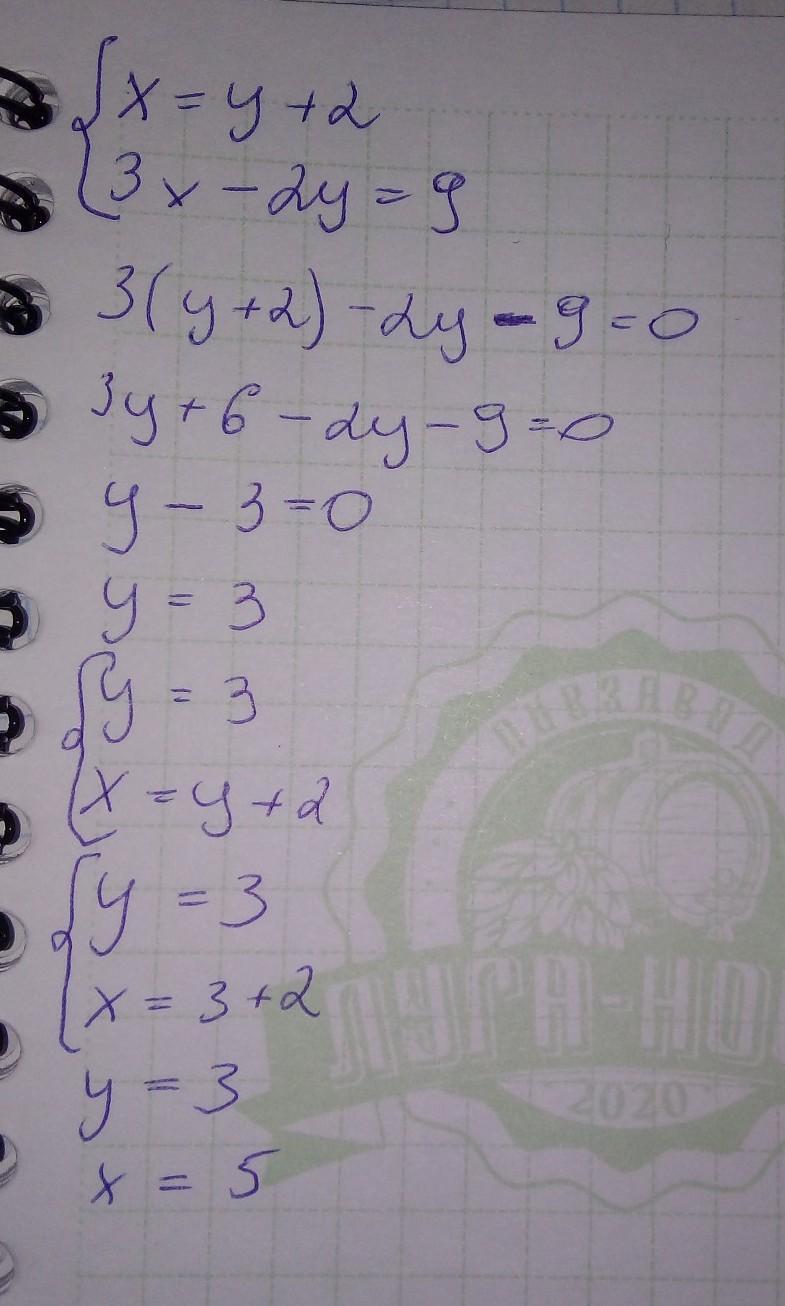 { x = y + 2
3x - 2y = 9
3(y+2) - 2y - 9 = 0
3y + 6 - 2y - 9 = 0
y - 3 = 0
y = 3
{ y = 3
x = y + 2
{ y = 3
x = 3 + 2
y = 3
x = 5
ПИВЗАВОД
ЛУГА-НО
2020